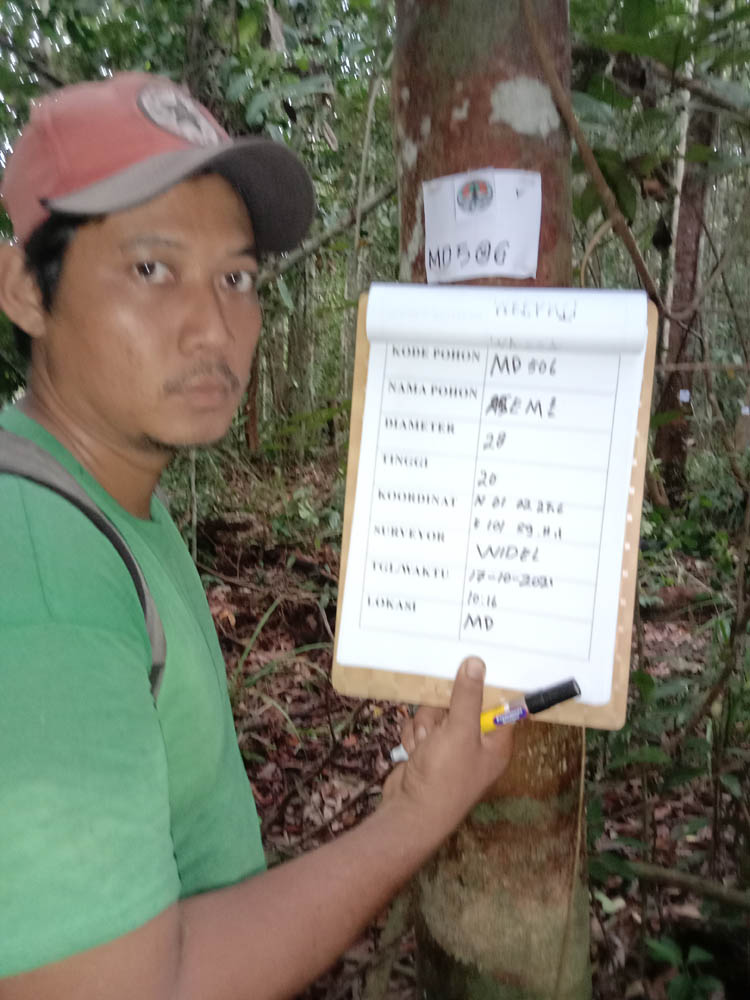 MD506
KODE POHON MD 506
NAMA POHON
DIAMETER 28
TINGGI 20
KOORDINAT N 01 02.276
SURVEYOR WIDEL
TGL/WAKTU 17-10-2021
10:16
LOKASI MD